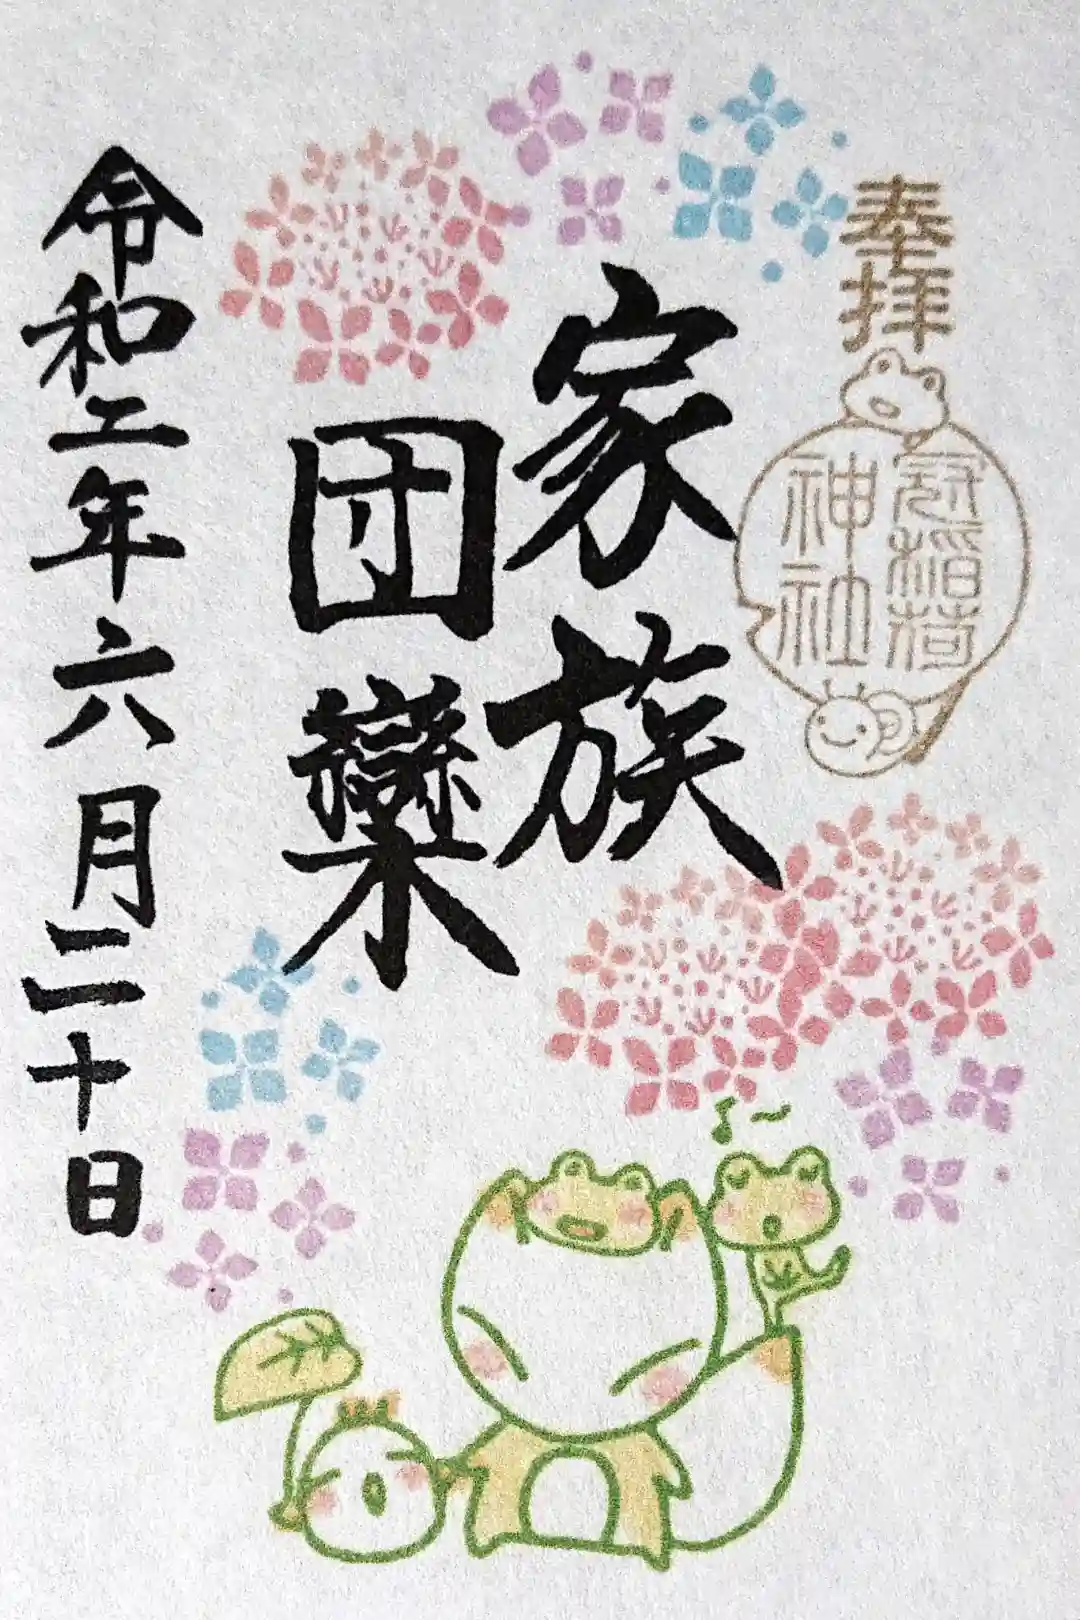 奉拝
冠稲荷
神社
家族
団欒
令和二年六月二十日